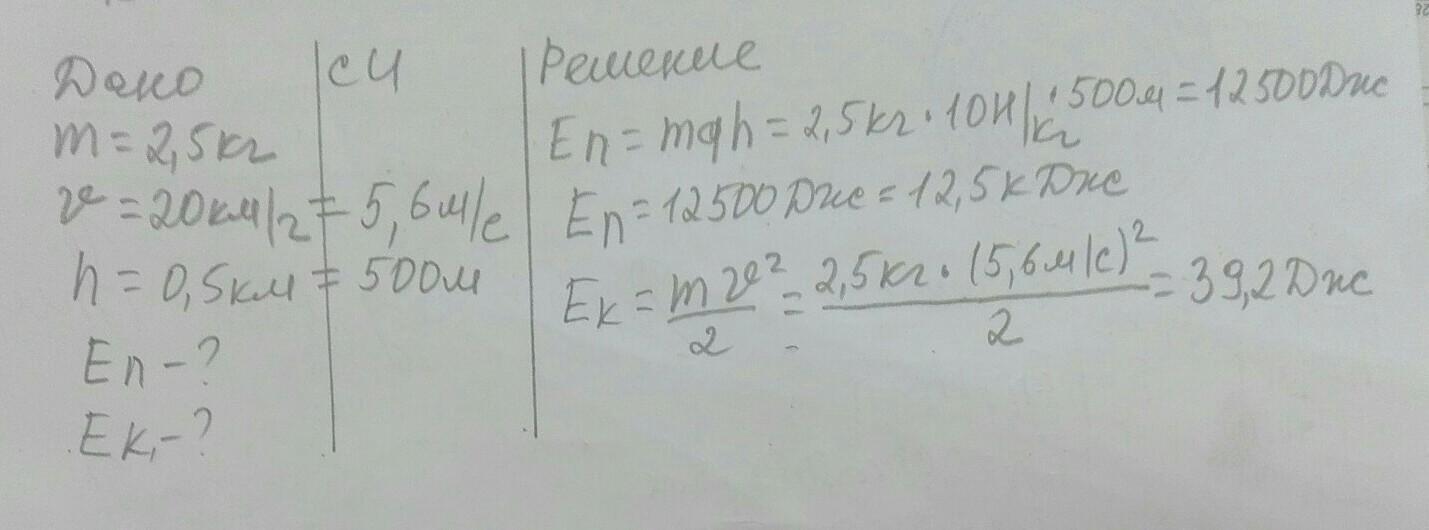 Дано
СИ
Решение
m = 2,5кг
v = 20км/г = 5,6м/с
h = 0,5км = 500м
Eп - ?
Eк - ?
Eп = mgh = 2,5кг · 10Н/кг · 500м = 12500Дж
Eп = 12500Дж = 12,5кДж
Eк = mv²/2 = 2,5кг · (5,6м/с)²/2 = 39,2Дж